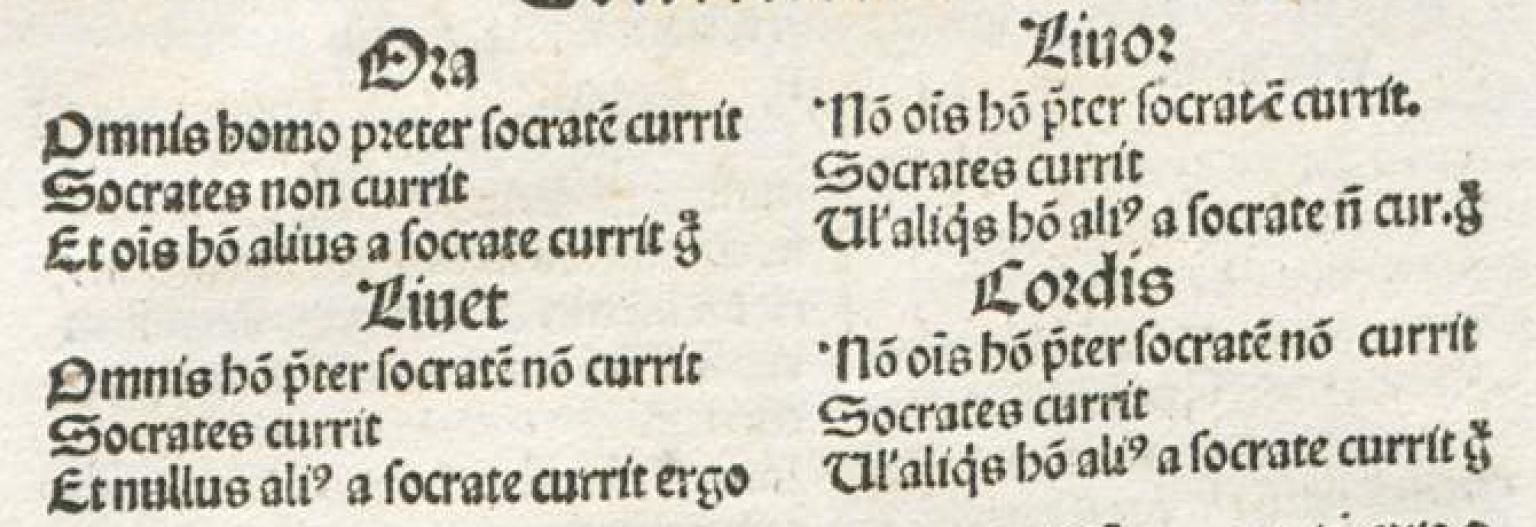 Ora
Omnis homo preter socratē currit
Socrates non currit
Et oīs hō alius a socrate currit g̃
Liuet
Omnis hō p̄ter socratē nō currit
Socrates currit
Et nullus aliꝰ a socrate currit ergo
Liuor
Nō oīs hō p̄ter socratē currit.
Socrates currit
Ul'aliq̇s hō aliꝰ a socrate n̄ cur.g̃
Cordis
Nō oīs hō p̄ter socratē nō currit
Socrates currit
Ul'aliq̇s hō aliꝰ a socrate currit g̃